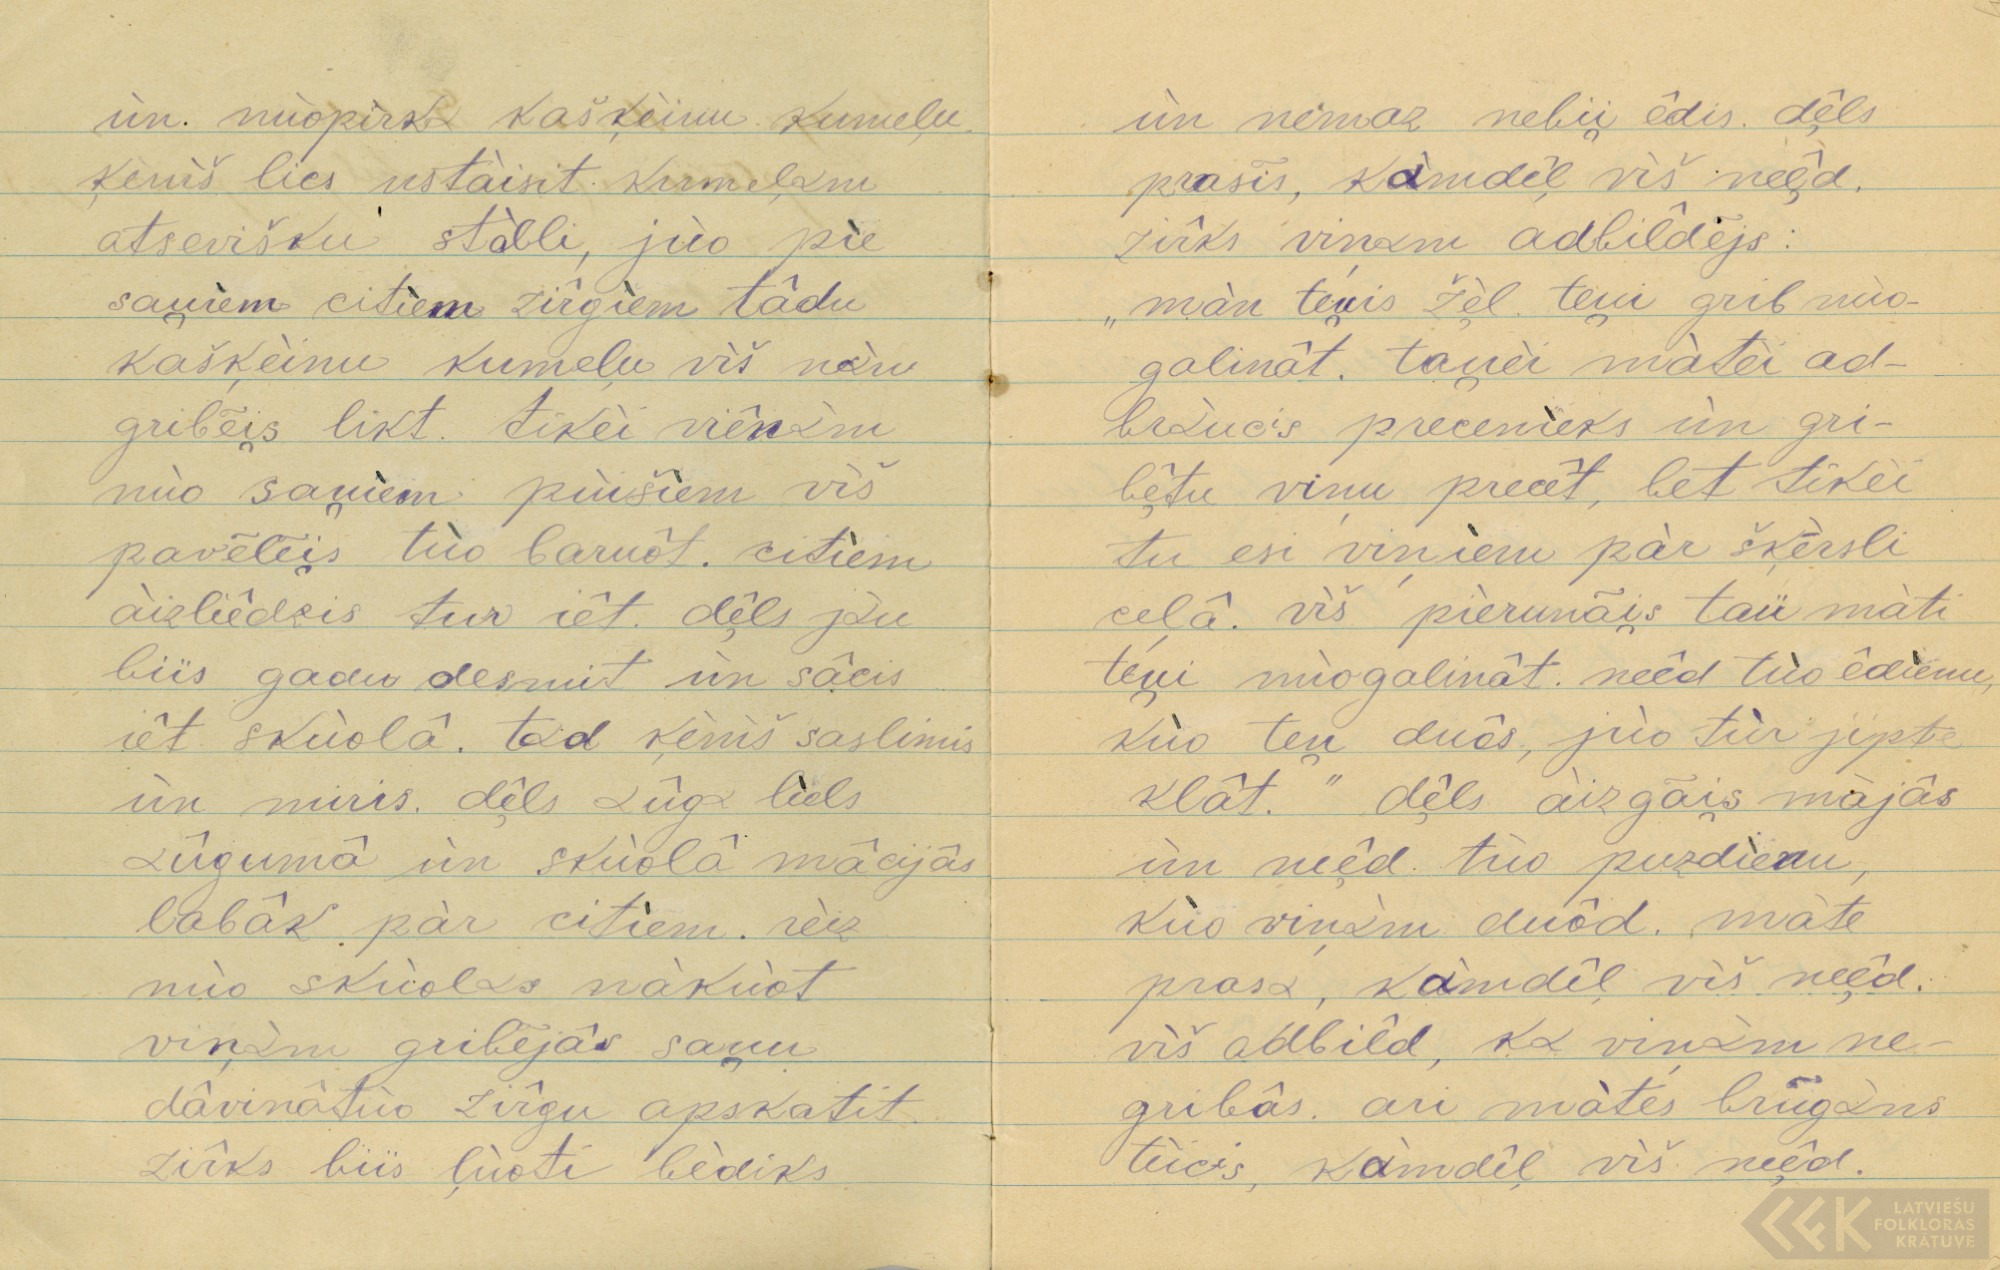 ùn. nùopìrkα kašķèinu kumeļu.
ķèniš lics ustàisit. kumeļαm
atsevišku stàlli, jùo pìe
sau̯ìem citìem zir̂gìem tâdu
kašķèinu kumeļu vìš nαu
gribẽi̯s likt. tikèi viênαm
nùo sau̯ìem pùišìem vìš
pavẽlẽi̯s tùo baruôt. citìem
àizliêdzis tur iêt. dêļs jαu
biis gadu desmit ùn sâcis
iêt skùolâ. tαd ķèniš saslimis
ùn miris. dêļs αûgα liels
αûgumâ ùn skùolâ mâcijâs
labâk pàr citìem. rèiz
nùo skùolαs nàkùot
viņαm gribẽjâs sau̯u
dâvinâtùo zir̂gu apskatît.
zir̂ks biis ļùoti bèdiks
ùn nèmaz nebii̯ êdis. dêļs
prasîs, kàmdêļ vìš neêd.
zir̂ks viņαm adbil̂dẽjs:
„màn teu̯is žèl. teu̯i grib nùo-
galinât. tau̯èi màtèi ad-
brαucis precenìeks ùn gri-
bêtu viņu precêt, bet tikèi
tu esi viņìem pàr šķèrsli
ceļâ. vìš pìerunãi̯s tau màti
teu̯i nùogalinât. neêd tùo êdìenu,
kùo teu̯ duôs, jùo tùr jipte
klât." dêļs àizgãi̯s màjâs
ùn neêd tùo puzdìenu,
kùo viņαm duôd. màte
prasα, kàmdêļ vìš neêd.
vìš adbil̂d, kα viņαm ne-
gribâs. ari màtes brũgαns
tèicis, kàmdêļ vìš neêd.
LATVIEŠU
FOLKLORAS
KRĀTUVE